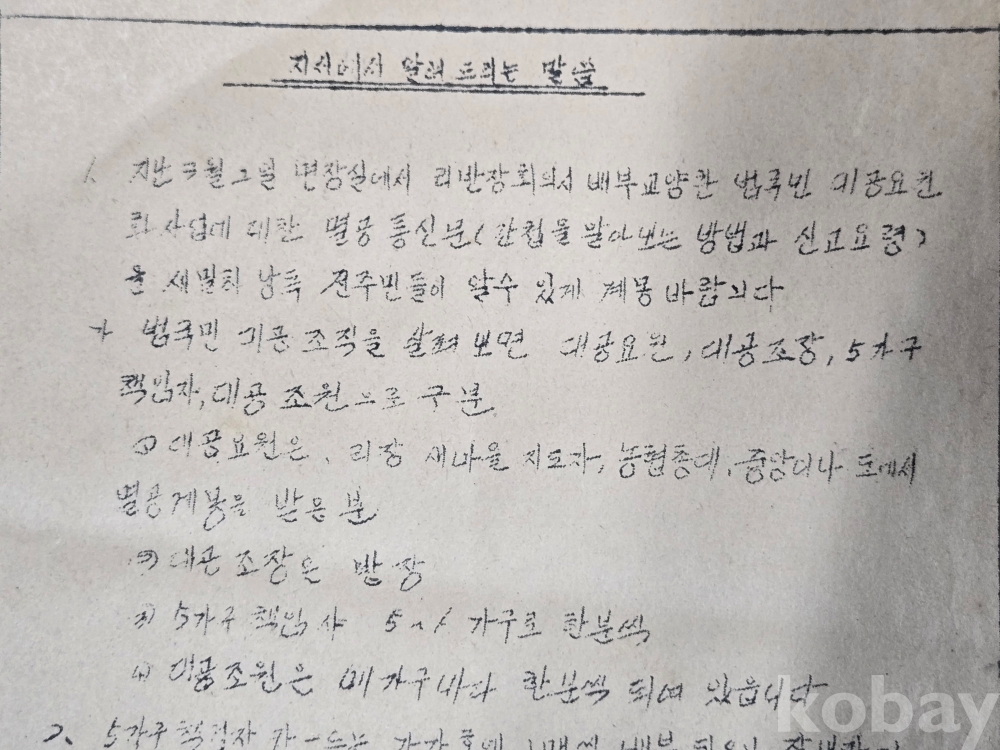 지서에서 알려 드리는 말씀
1 지난 3월 2일 면장실에서 리반장회의서 배부교양한 범국민 대공요원
화 사업에 대한 멸공통신문(간첩을 발아보는 방법과 신고요령)
을 세밀히 낭독 전주민들이 알수 있게 계몽 바람니다
가 범국민 대공 조직을 살펴보면 대공요원, 대공조장, 5가구
책임자, 대공 조원으로 구분
① 대공요원은, 리장 새마을 지도자, 농협총대, 중앙이나 도에서
멸공계몽을 받은 분
② 대공 조장은 반장
③ 5가구 책임자 가구로 한분씩
④ 대공조원은 매가구마다 한분씩 되여 있읍니다
2. 5가구 책임자
kobay